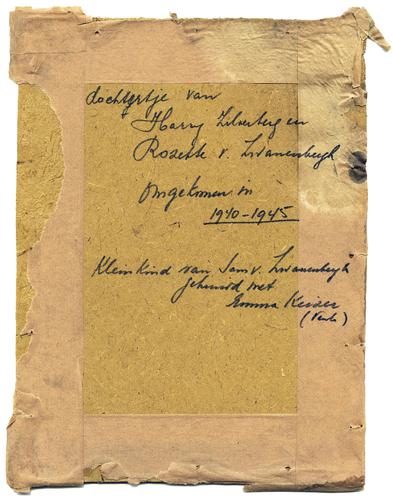 dochtertje van
Harry Zilverberg en
Rozette v. Zwanenbergh
Omgekomen in
1940-1945
Kleinkind van Sam v. Zwanenbergh
gehuwd met
Emma